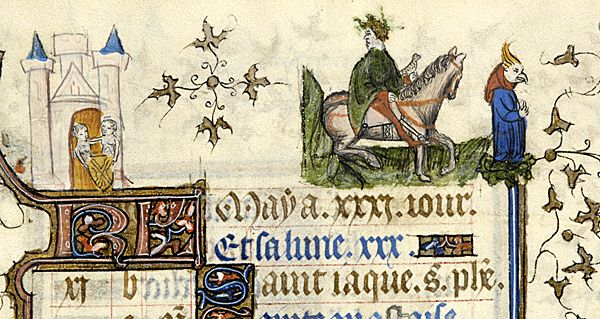 KL Maÿ a. xxxj. iour.
Et la lune. xxx.
xj b Saint iaque. s. phẽ.